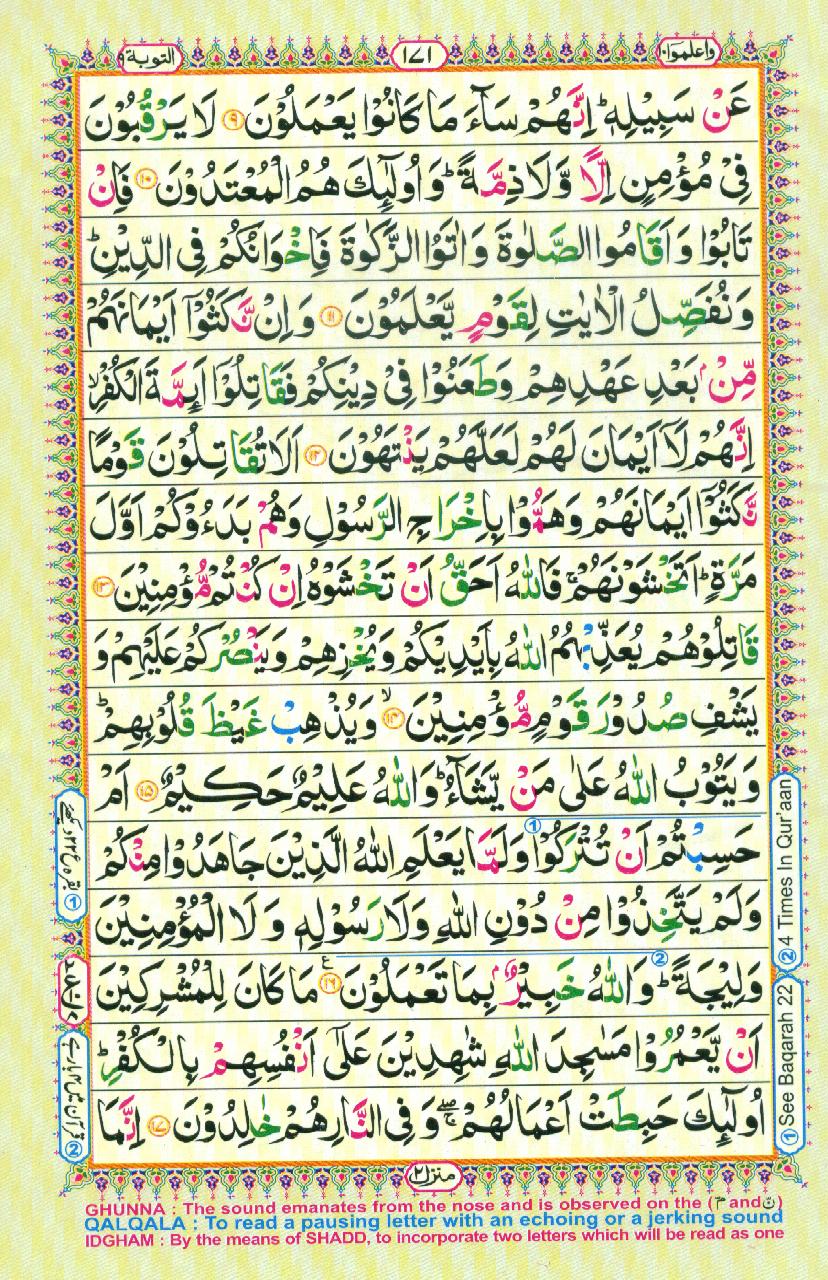 واعلموا ۱۰
۱۷۱
التوبة ۹
عَنْ سَبِيْلِهٖ ؕ اِنَّهُمْ سَآءَ مَا كَانُوْا يَعْمَلُوْنَ ۹ لَا يَرْقُبُوْنَ
فِيْ مُؤْمِنٍ اِلًّا وَّلَا ذِمَّةً ؕ وَاُولٰٓئِكَ هُمُ الْمُعْتَدُوْنَ ۱۰ فَاِنْ
تَابُوْا وَاَقَامُوا الصَّلٰوةَ وَاٰتَوُا الزَّكٰوةَ فَاِخْوَانُكُمْ فِي الدِّيْنِ ؕ
وَنُفَصِّلُ الْاٰيٰتِ لِقَوْمٍ يَّعْلَمُوْنَ ۱۱ وَاِنْ نَّكَثُوْۤا اَيْمَانَهُمْ
مِّنْۢ بَعْدِ عَهْدِهِمْ وَطَعَنُوْا فِيْ دِيْنِكُمْ فَقَاتِلُوْۤا اَىِٕمَّةَ الْكُفْرِ ۙ
اِنَّهُمْ لَاۤ اَيْمَانَ لَهُمْ لَعَلَّهُمْ يَنْتَهُوْنَ ۱۲ اَلَا تُقَاتِلُوْنَ قَوْمًا
نَّكَثُوْۤا اَيْمَانَهُمْ وَهَمُّوْا بِاِخْرَاجِ الرَّسُوْلِ وَهُمْ بَدَءُوْكُمْ اَوَّلَ
مَرَّةٍ ؕ اَتَخْشَوْنَهُمْ ۚ فَاللّٰهُ اَحَقُّ اَنْ تَخْشَوْهُ اِنْ كُنْتُمْ مُّؤْمِنِيْنَ ۱۳
قَاتِلُوْهُمْ يُعَذِّبْهُمُ اللّٰهُ بِاَيْدِيْكُمْ وَيُخْزِهِمْ وَيَنْصُرْكُمْ عَلَيْهِمْ وَ
يَشْفِ صُدُوْرَ قَوْمٍ مُّؤْمِنِيْنَ ۙ ۱۴ وَيُذْهِبْ غَيْظَ قُلُوْبِهِمْ ؕ
وَيَتُوْبُ اللّٰهُ عَلٰى مَنْ يَّشَآءُ ؕ وَاللّٰهُ عَلِيْمٌ حَكِيْمٌ ۱۵ اَمْ
حَسِبْتُمْ اَنْ تُتْرَكُوْا وَلَمَّا يَعْلَمِ اللّٰهُ الَّذِيْنَ جَاهَدُوْا مِنْكُمْ
وَلَمْ يَتَّخِذُوْا مِنْ دُوْنِ اللّٰهِ وَلَا رَسُوْلِهٖ وَلَا الْمُؤْمِنِيْنَ
وَلِيْجَةً ؕ وَاللّٰهُ خَبِيْرٌۢ بِمَا تَعْمَلُوْنَ ۱۶ ع مَا كَانَ لِلْمُشْرِكِيْنَ
اَنْ يَّعْمُرُوْا مَسٰجِدَ اللّٰهِ شٰهِدِيْنَ عَلٰٓى اَنْفُسِهِمْ بِالْكُفْرِ ؕ
اُولٰٓئِكَ حَبِطَتْ اَعْمَالُهُمْ ۖۚ وَفِي النَّارِ هُمْ خٰلِدُوْنَ ۱۷ اِنَّمَا
① See Baqarah 22 ② 4 Times In Qur'aan
منزل ۲
GHUNNA : The sound emanates from the nose and is observed on the (مّ and نّ)
QALQALA : To read a pausing letter with an echoing or a jerking sound
IDGHAM : By the means of SHADD, to incorporate two letters which will be read as one